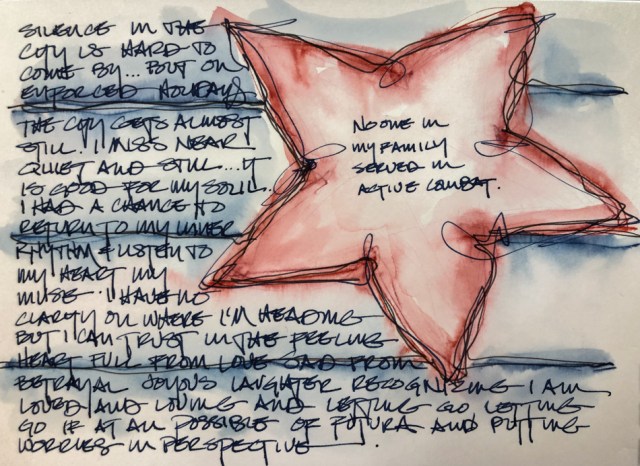 SILENCE IN THE
CITY IS HARD TO
COME BY... BUT ON
ENFORCED HOLIDAYS
THE CITY GETS ALMOST
STILL. I MISS NEAR
QUIET AND STILL... IT
IS GOOD FOR MY SOUL..
I HAD A CHANCE TO
RETURN TO MY INNER
RHYTHM & LISTEN TO
MY HEART MY
MUSE. I HAVE NO
CLARITY ON WHERE I'M HEADING
BUT I CAN TRUST IN THE FEELING
HEART FULL FROM LOVE SAD FROM
BETRAYAL JOYOUS LAUGHTER RECOGNIZING I AM
LOVED AND LOVING AND LETTING GO, LETTING
GO IF AT ALL POSSIBLE OF AND PUTTING
WORRIES IN PERSPECTIVE.
NO ONE IN
MY FAMILY
SERVED IN
ACTIVE COMBAT.